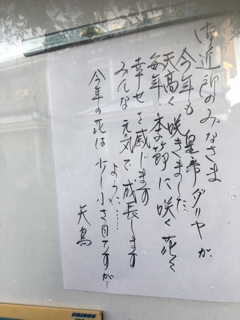 ご近所のみなさま
今年も皇帝ダリヤが
天高く咲きました
毎年季節に咲く花を
幸せを感じます
みんな元気で成長します
ように……
今年の花は少し小さ目ですが…